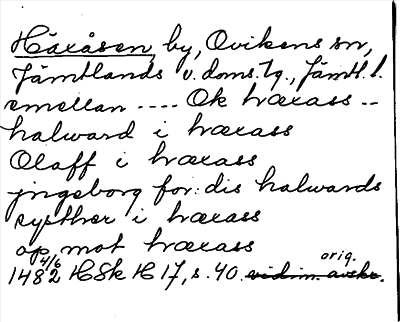 Häxåsen, by, Ovikens sn,
Jämtlands v. doms. tg., Jämtl. l.
emellan ---- Ok hæxass --
halward i hæxass
Olaff i hæxass
jngeborg for:dis halwards
systher i hæxass
op mot hæxass
1482 4/6 HSk H 17, s. 40. vidim. avskr. orig.